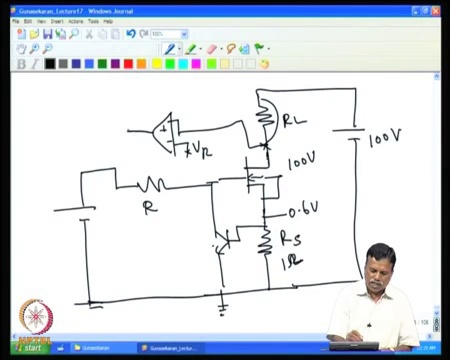 Gunasekaran_Lecture17 - Windows Journal
File Edit View Insert Actions Tools Help
100%
B I
RL
100V
VR
100V
R
0.6V
RS
1Ω
start
Gunasekaran
Gunasekaran_Lectur...